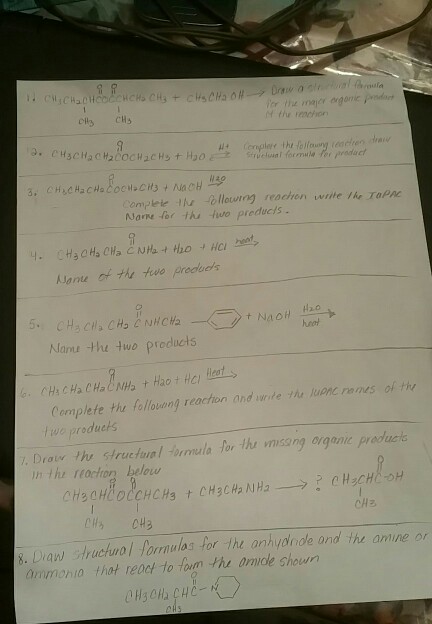 O O
1. CH3CH2CHCOCCHCH2CH3 + CH3CH2OH → Draw a structural formula
for the major organic product
of the reaction
CH3 CH3
O
2. CH3CH2CH2COCH2CH3 + H2O ⇌ H+ Complete the following reaction draw
structural formula for product
O
3. CH3CH2CH2COCH2CH3 + NaOH H2O →
Complete the following reaction write the IUPAC
Name for the two products.
O
4. CH3CH2CH2CNH2 + H2O + HCl heat →
Name of the two products
O
5. CH3CH2CH2CNHCH2 + NaOH H2O heat →
Name the two products
O
6. CH3CH2CH2CNH2 + H2O + HCl Heat →
Complete the following reaction and write the IUPAC names of the
two products
7. Draw the structural formula for the missing organic products
in the reaction below
O O O
CH3CHCOCCHCH3 + CH3CH2NH2 → ? CH3CHC-OH
CH3 CH3 CH3
8. Draw structural formulas for the anhydride and the amine or
ammonia that react to form the amide shown
O
CH3CH2CHC-N
CH3